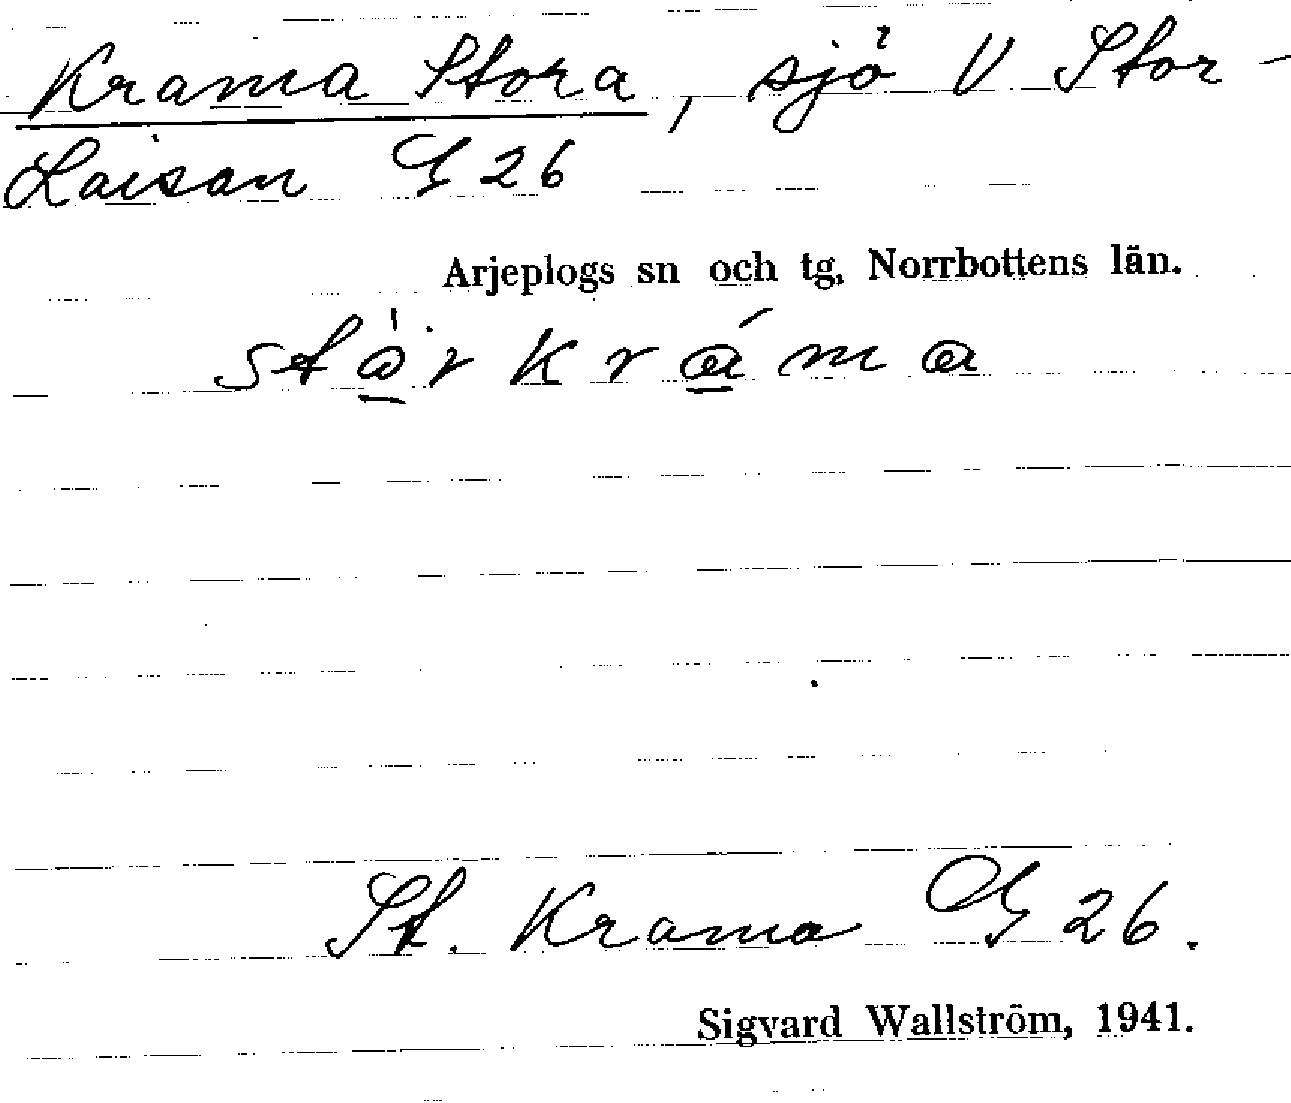 Krama Stora, sjö V Stor-
Laisan G 26
Arjeplogs sn och tg. Norrbottens län.
St. Krama G 26.
Sigvard Wallström, 1941.